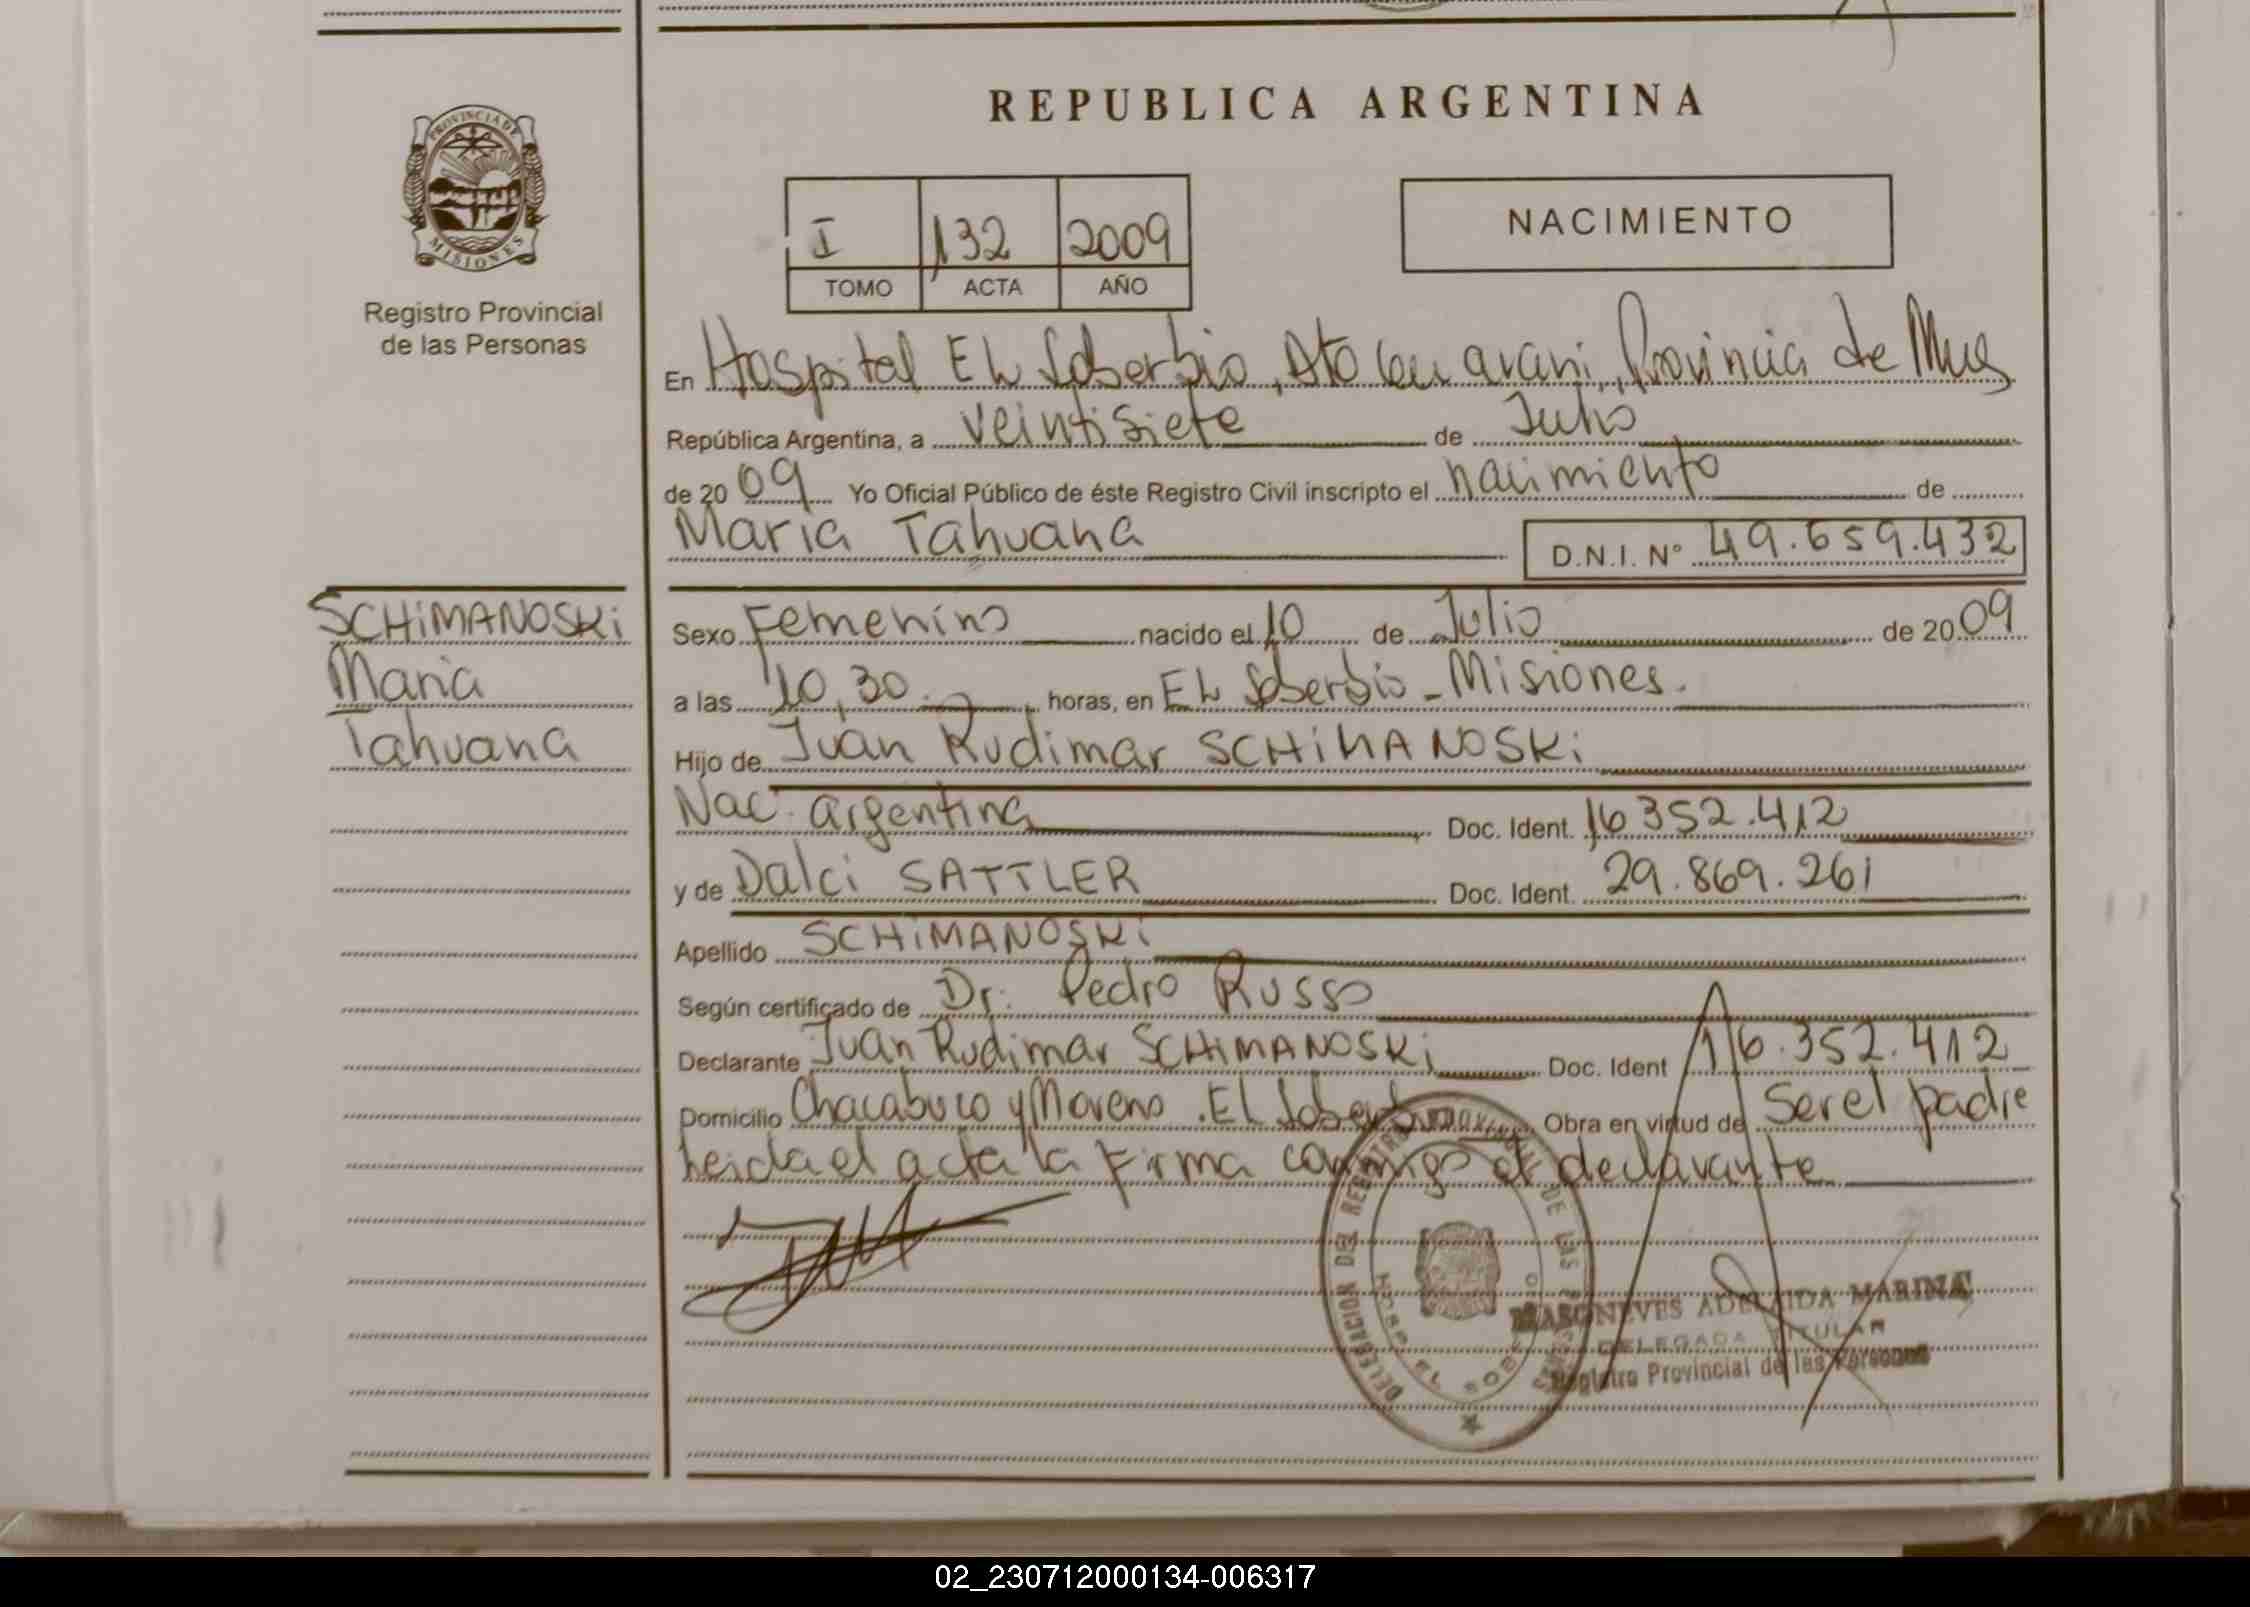 REPUBLICA ARGENTINA
PROVINCIA DE MISIONES
Registro Provincial
de las Personas
I 132 2009
TOMO ACTA AÑO
NACIMIENTO
En Hospital EL Soberbio, Dto Guarani, Provincia de Mnes
República Argentina, a veintisiete de Julio
de 2009 Yo Oficial Público de éste Registro Civil inscripto el nacimiento de
Maria Tahuana D.N.I. N° 49.659.432
SCHiMANOSKi
Maria
Tahuana
Sexo Femenino nacido el 10 de Julio de 2009
a las 10,30. horas, en EL Soberbio - Misiones.
Hijo de Juan Rudimar SCHiMANOSKi
Nac. argentina Doc. Ident. 16352.412
y de Dalci SATTLER Doc. Ident. 29.869.261
Apellido SCHiMANOSKi
Según certificado de Dr. Pedro Russo
Declarante Juan Rudimar SCHiMANOSKi Doc. Ident 16.352.412
Domicilio Chacabuco y Moreno. EL Soberbio Obra en virtud de Ser el padre
Leida el acta la Firma conmigo el declarante
DELEGACION DEL REGISTRO PROVINCIAL DE LAS PERSONAS
EL SOBERBIO
ADELAIDA MARINA
DELEGADA TITULAR
Registro Provincial de las Personas
02_230712000134-006317